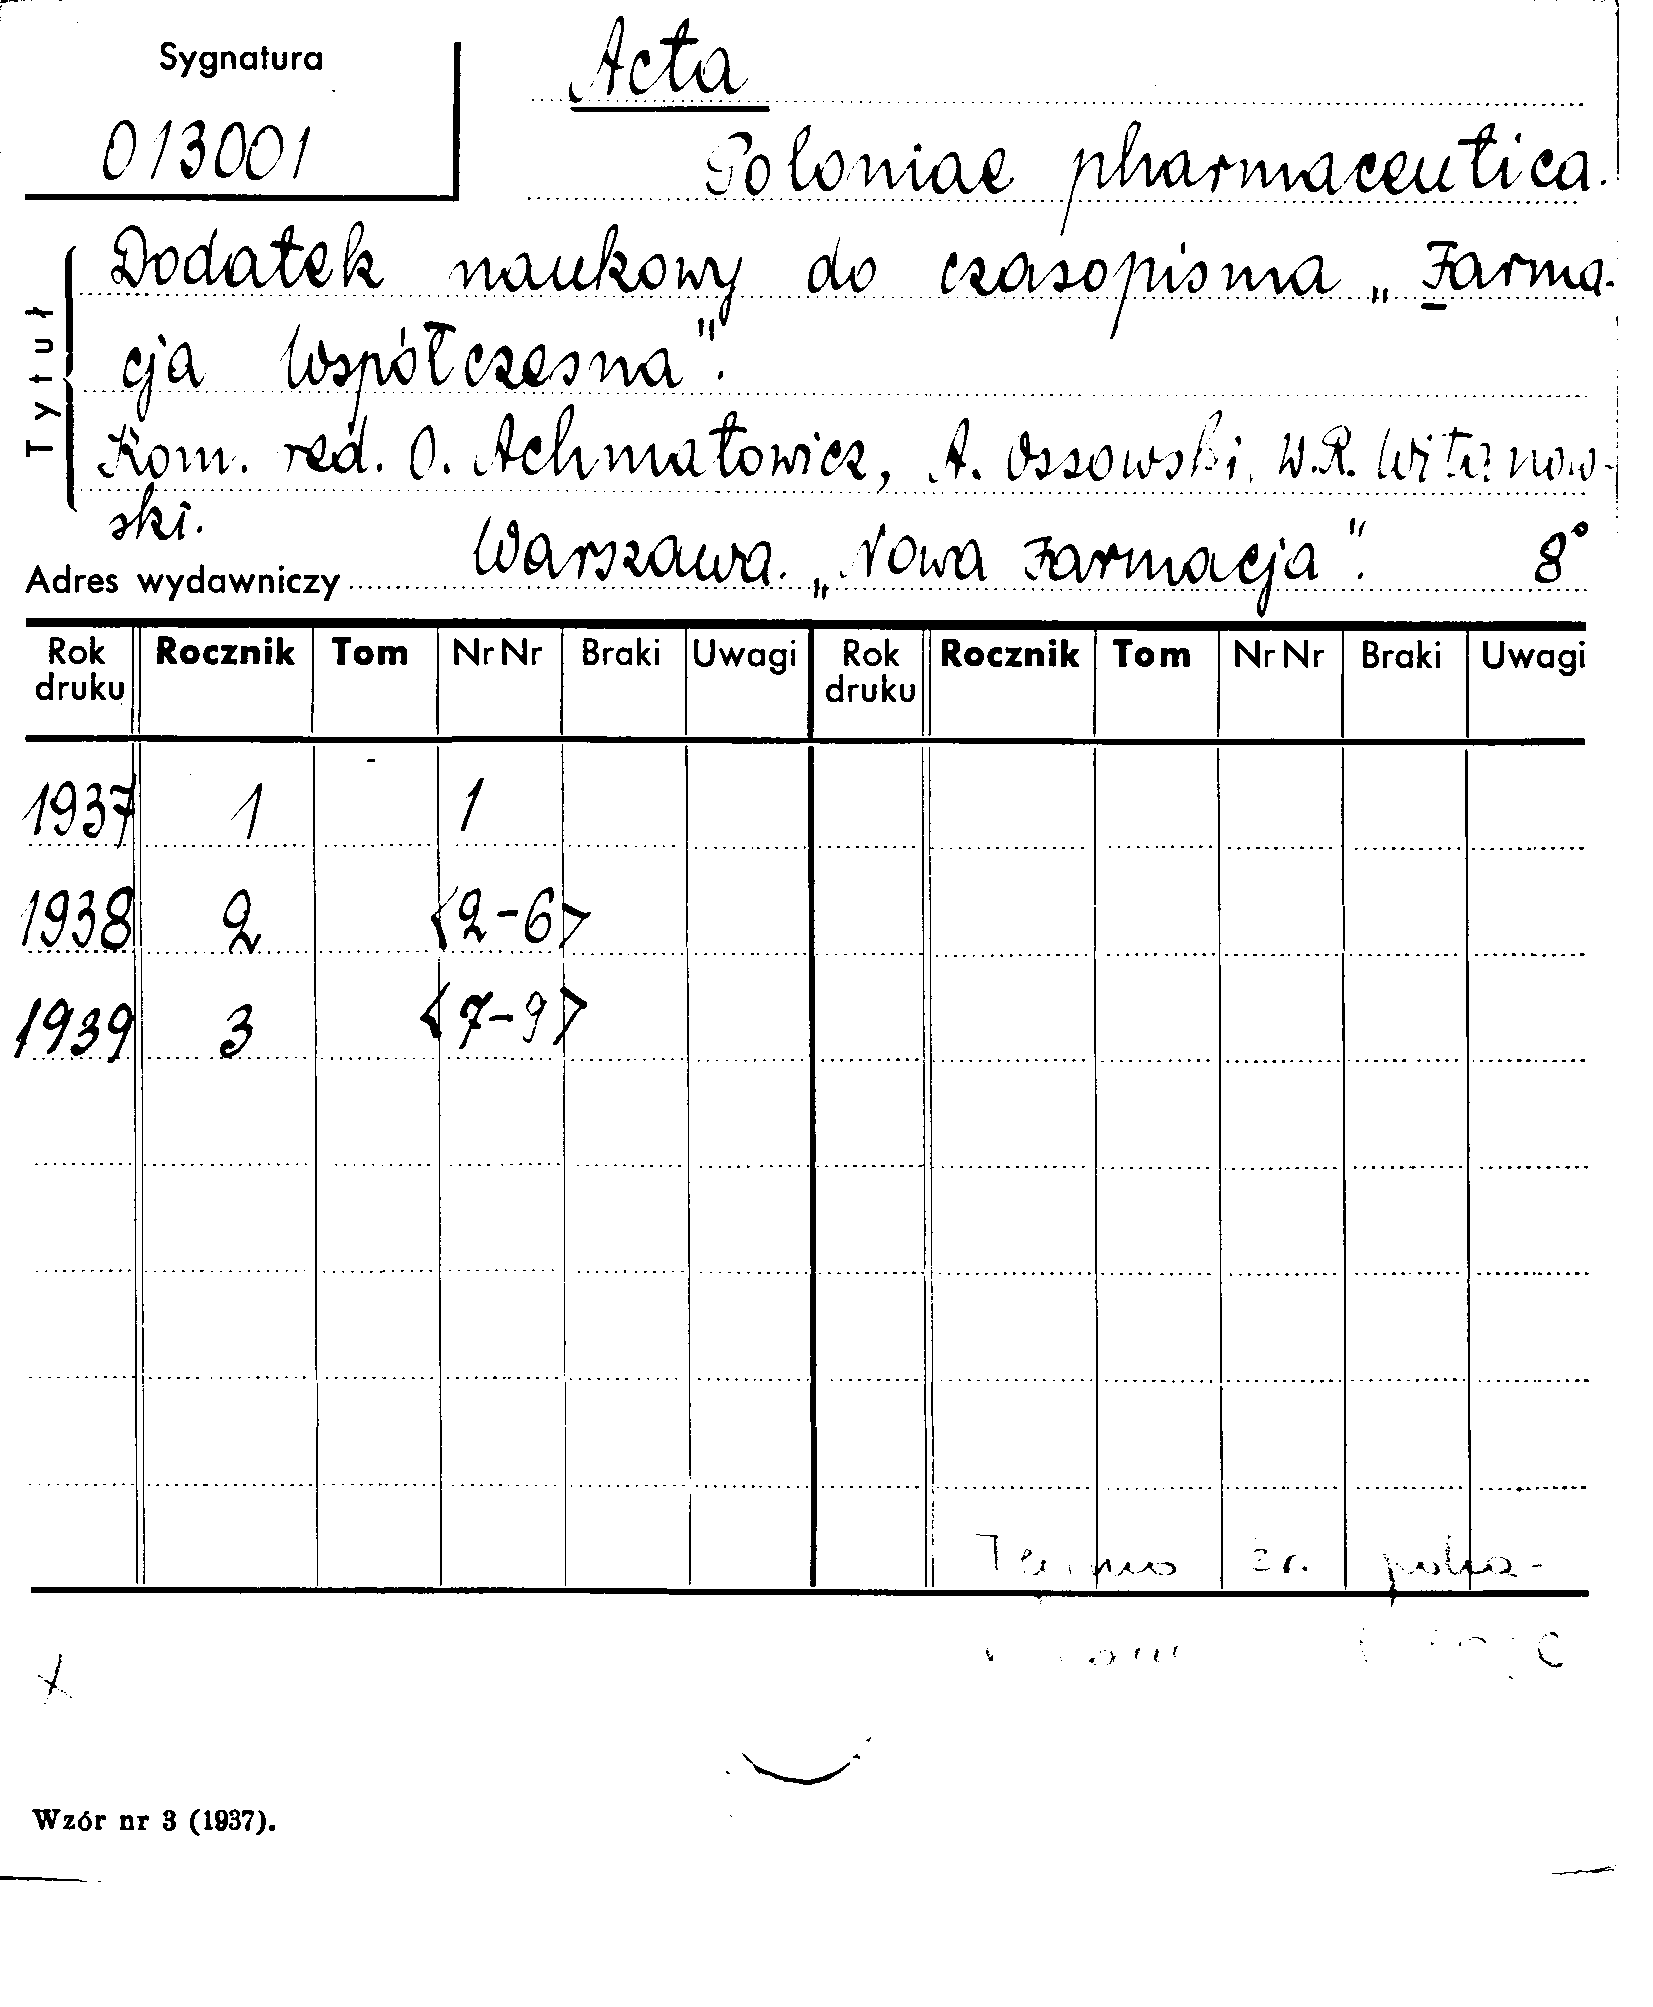 Sygnatura
013001
Acta
Poloniae pharmaceutica.
Tytuł
Dodatek naukowy do czasopisma „Farma-
cja Współczesna".
Kom. red. O. Achmatowicz, A. Ossowski, W.R. Witanow-
ski.
Adres wydawniczy Warszawa. „Nowa Farmacja". 8°
Rok druku Rocznik Tom Nr Nr Braki Uwagi Rok druku Rocznik Tom Nr Nr Braki Uwagi
1937 1 1
1938 2 <2-6>
1939 3 <7-9>
x
Wzór nr 3 (1937).